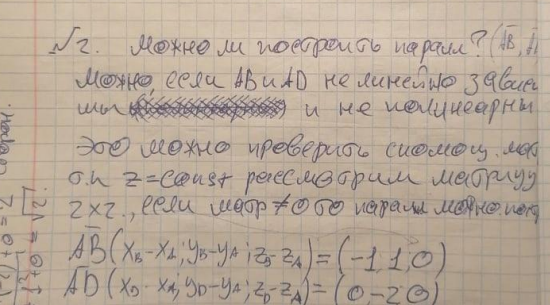 √2. Можно ли построить паралл? (AB, A
Можно, если AB и AD не линейно зави
мы и не
Это можно проверить с помощ. мат
т.к z = const рассмотрим матрицу
2×2, если матр ≠ 0 то паралл можно
AB (x_B - x_A; y_B - y_A; z_B - z_A) = (-1, 1, 0)
AD (x_D - x_A; y_D - y_A; z_D - z_A) = (0 -2 0)
+0 = 2
+0 = √2.